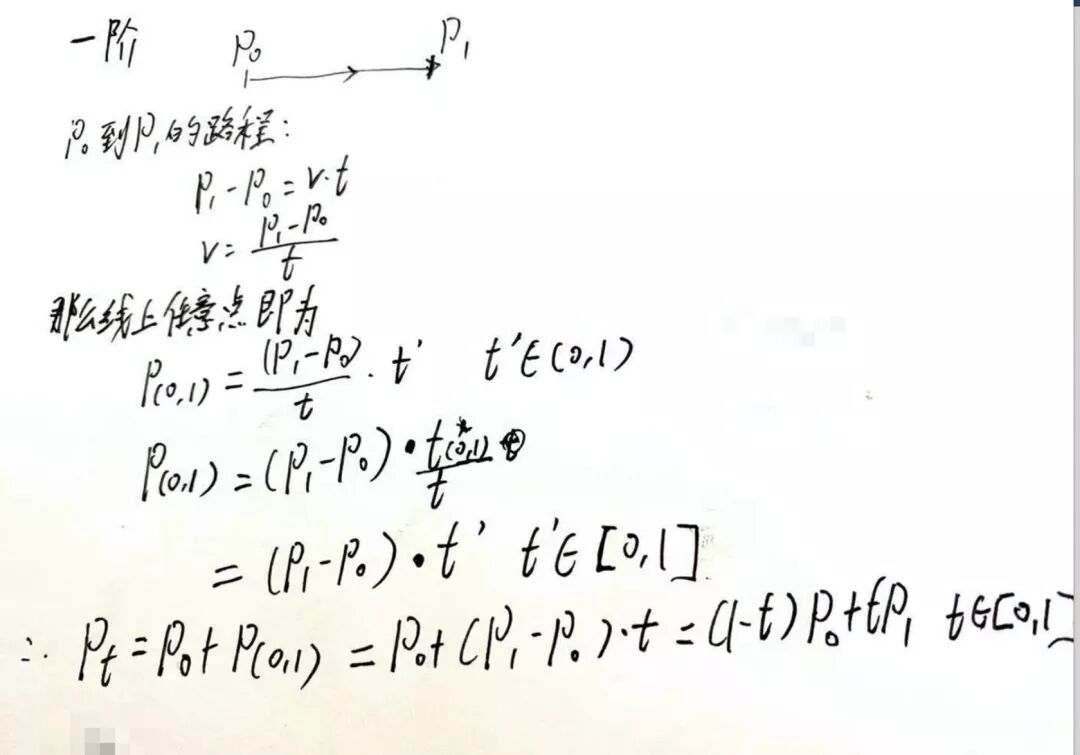 一阶 P₀ P₁
P₀到P₁的路程:
P₁-P₀=v·t
v=\frac{P₁-P₀}{t}
那么线上任意点即为
P(0,1)=\frac{(P₁-P₀)}{t}·t' t'∈(0,1)
P(0,1)=(P₁-P₀)·\frac{t(0,1)}{t}
=(P₁-P₀)·t' t'∈[0,1]
∴ Pt=P₀+P(0,1)=P₀+(P₁-P₀)·t=(1-t)P₀+tP₁ t∈[0,1]